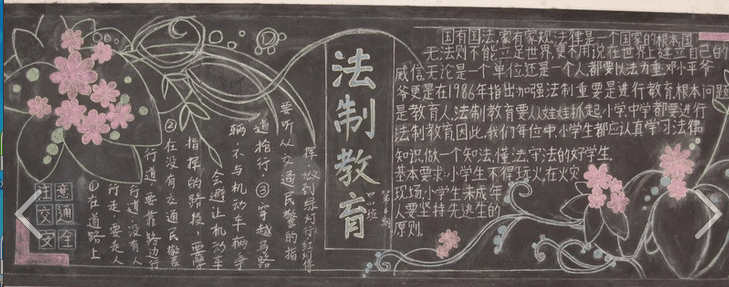 法制教育
第6期
国有国法,家有家规,法律是一个国家的根本,国
无法则不能立足世界,更不用说在世界上建立自己的
威信无论是一个单位还是一个人,都要以法为重,邓小平爷
爷更是在1986年指出加强法制重要是进行教育,根本问题
是教育人,法制教育要从娃娃抓起,小学.中学都要进行
法制教育,因此,我们每位中.小学生都应认真学习法律
知识,做一个知法,懂法,守法的好学生.
基本要求:小学生不得玩火,在火灾
现场,小学生未成年
人要坚持先逃生的
原则.
注意
交通
安全
①在道路上
行走,要走人
行道,没有人
行道,要靠路边行
②在没有交通民警
指挥的路段,要学
会避让机动车
辆,不与机动车辆争
道抢行,③穿越马路
要听从交通民警的指
挥,做到绿灯行红灯停